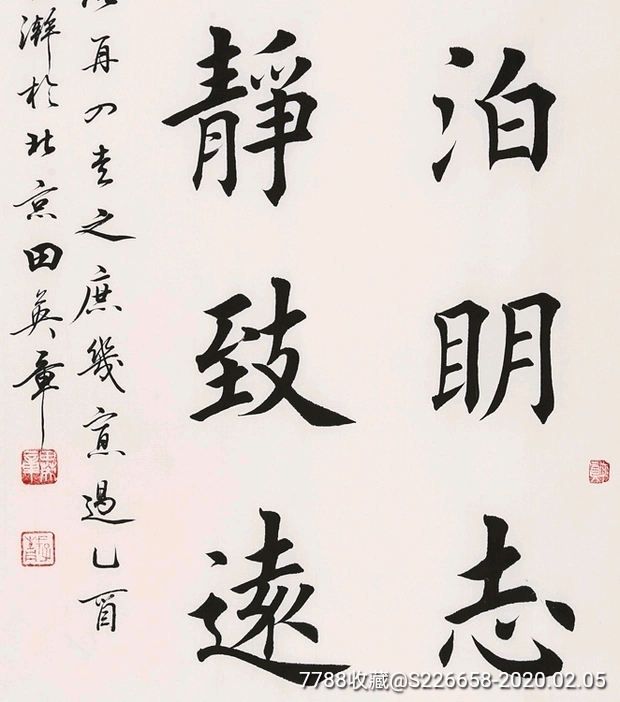 泊眀志
靜致遠
再四書之庶幾寡過乙酉
於北京田英章
7788收藏@S226658-2020.02.05